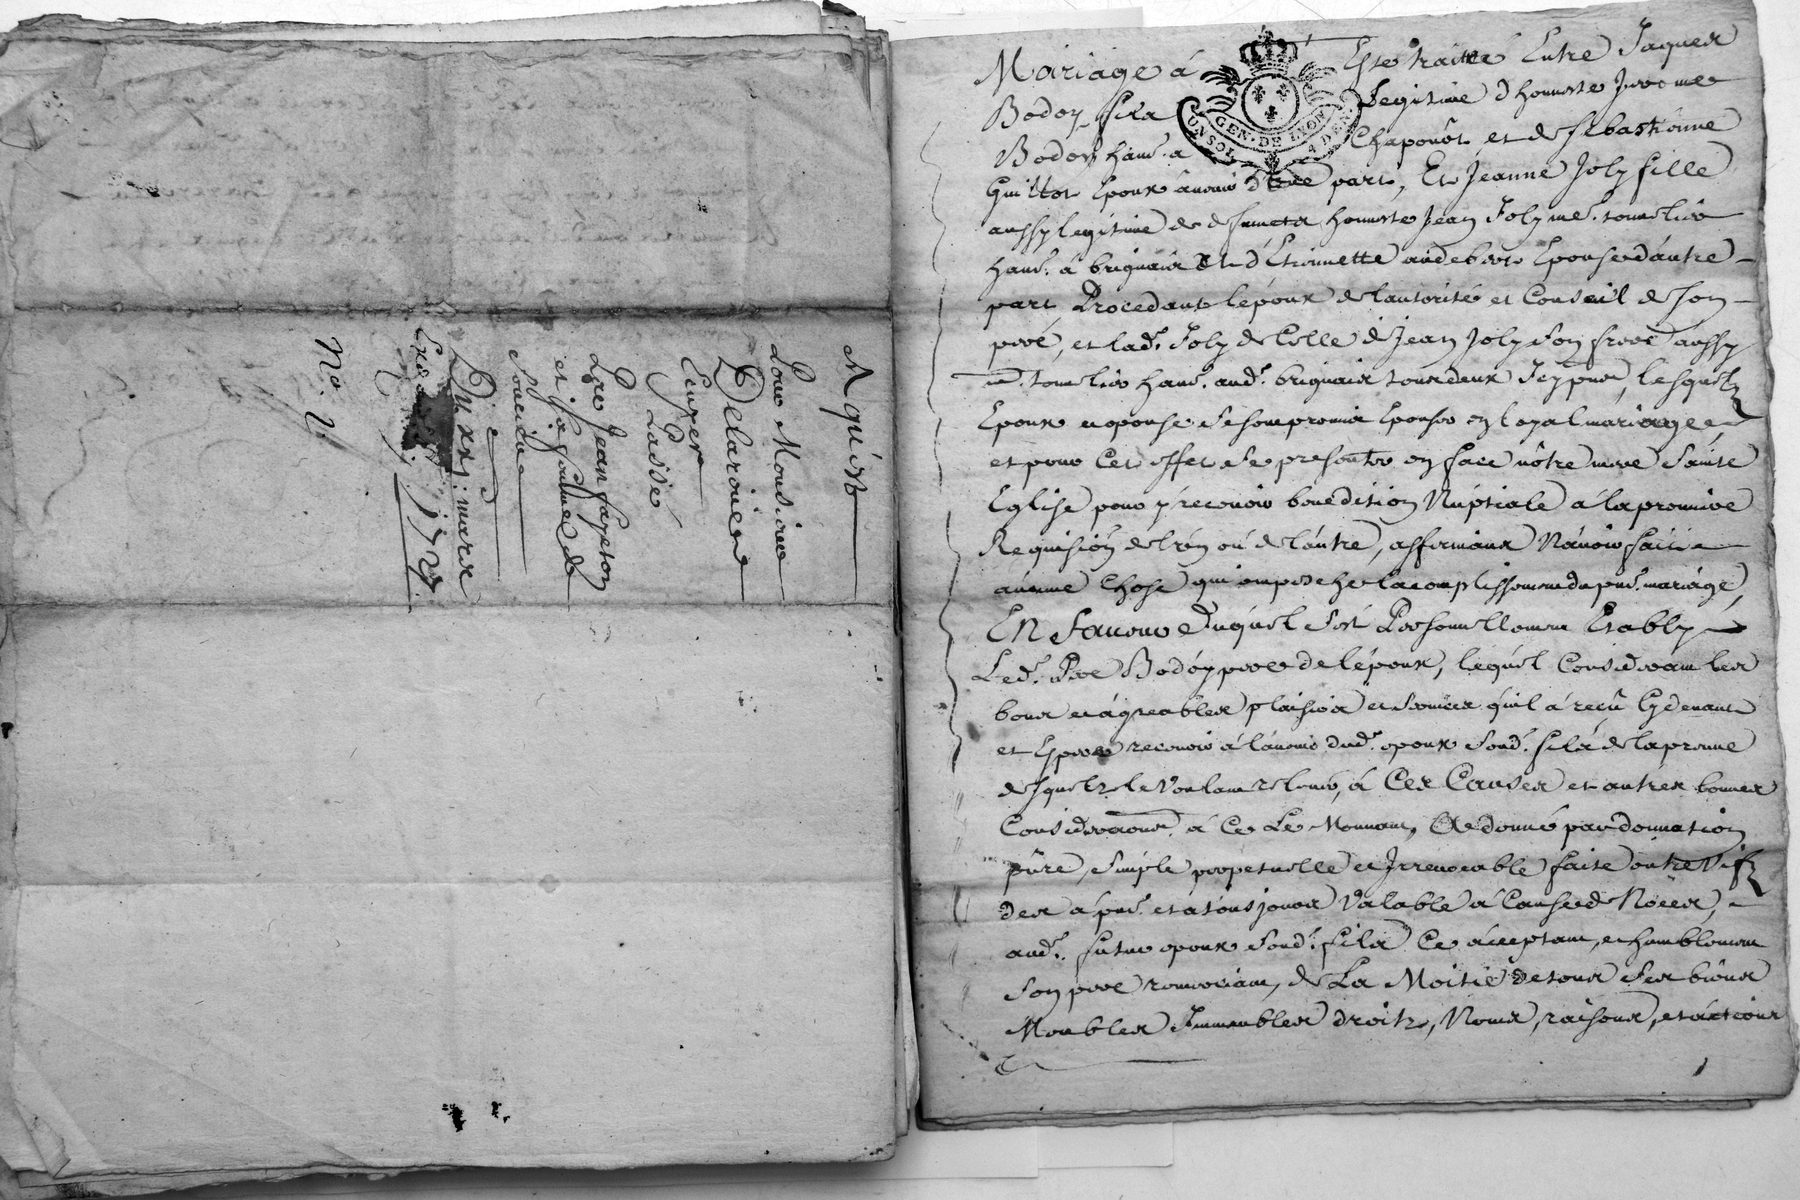 Aquist
Pour Monsieur
Delarouiere
Enuers
Passé
Par Jean fayeton
et sa femme de
Soucieu
Du xxj. mars
1727.
No. 2
Mariage á Esté traitté Entre Jaques
Bodoy fils Legitime d'honneste Jerome
Bodoy hant. a Chaponôst et de sebastienne
Guillot Epoux áuenir d'Une part, Et Jeanne Joly fille
aussy legitime de deffunctz honneste Jean Joly me. tonnelier
hant. á brignais & d'Etiennette audebert Epouse dáutre
part, Procedant lépoux de lautorité et Conseil de son
pere, et lade. Joly de Celle de Jean Joly son frere áussy
me. tonnelier hant. aud. brignais tous deux Icy pnts, lesquelz
Epoux et epouse se sont promis Epouser en loyal mariage
et pour Cet effet se presenter en face nôtre mere Sainte
Eglise pour y receuoir benedition Nuptiale á la premiere
Requisión de l'un ou de láutre, affirmans Náuoir fait
aucune Chose qui empesche lácomplissement du pnt. mariáge,
EN Faueur duquel s'est Personnellement Estably
Led. Pere Bodoy pere de lépoux, lequel Considerant les
bons et ágreables plaisirs et seruices quil á reçu Cy deuant
et Espere receuoir á láuenir dud. epoux sond. fils de la preuue
desquelz le Voulant releuer, á Ces Causes et autres bonnes
Considerations á Ce Le Mouuant, A donné par donnation
pure, simple perpetuelle et Irreuocable faite entre Vifz
des á pnt. et a tousjours Valable á Cause de Nôces,
aud. futur epoux sond. fils Ce ácceptant, et humblement
son pere remerciant, de La Moitié de tous ses biens
Meubles Immeubles droitz, Noms, raisons, et áctions
UN SOL
GEN. DE LYON
4 DEN.